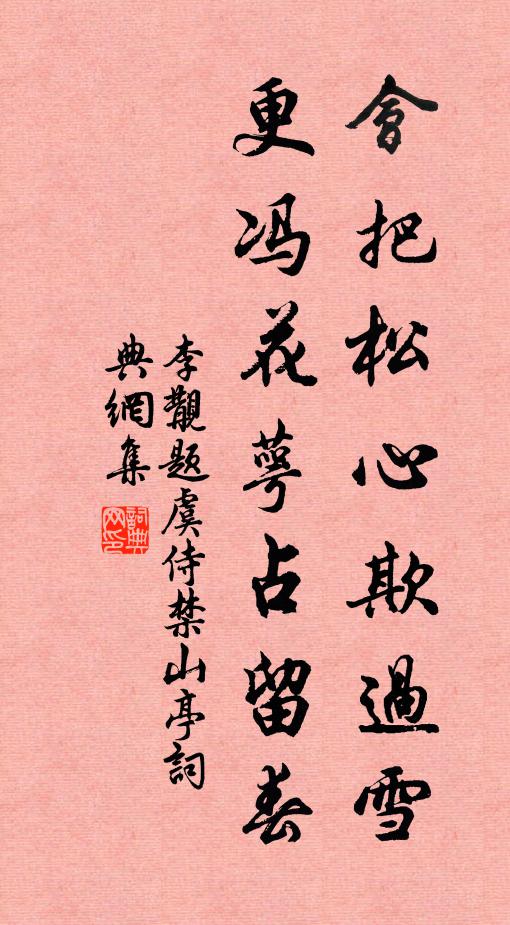 會把松心欺過雪
更冯花萼占留春
李觀題虞侍禁山亭詞
典網集
詞典網印